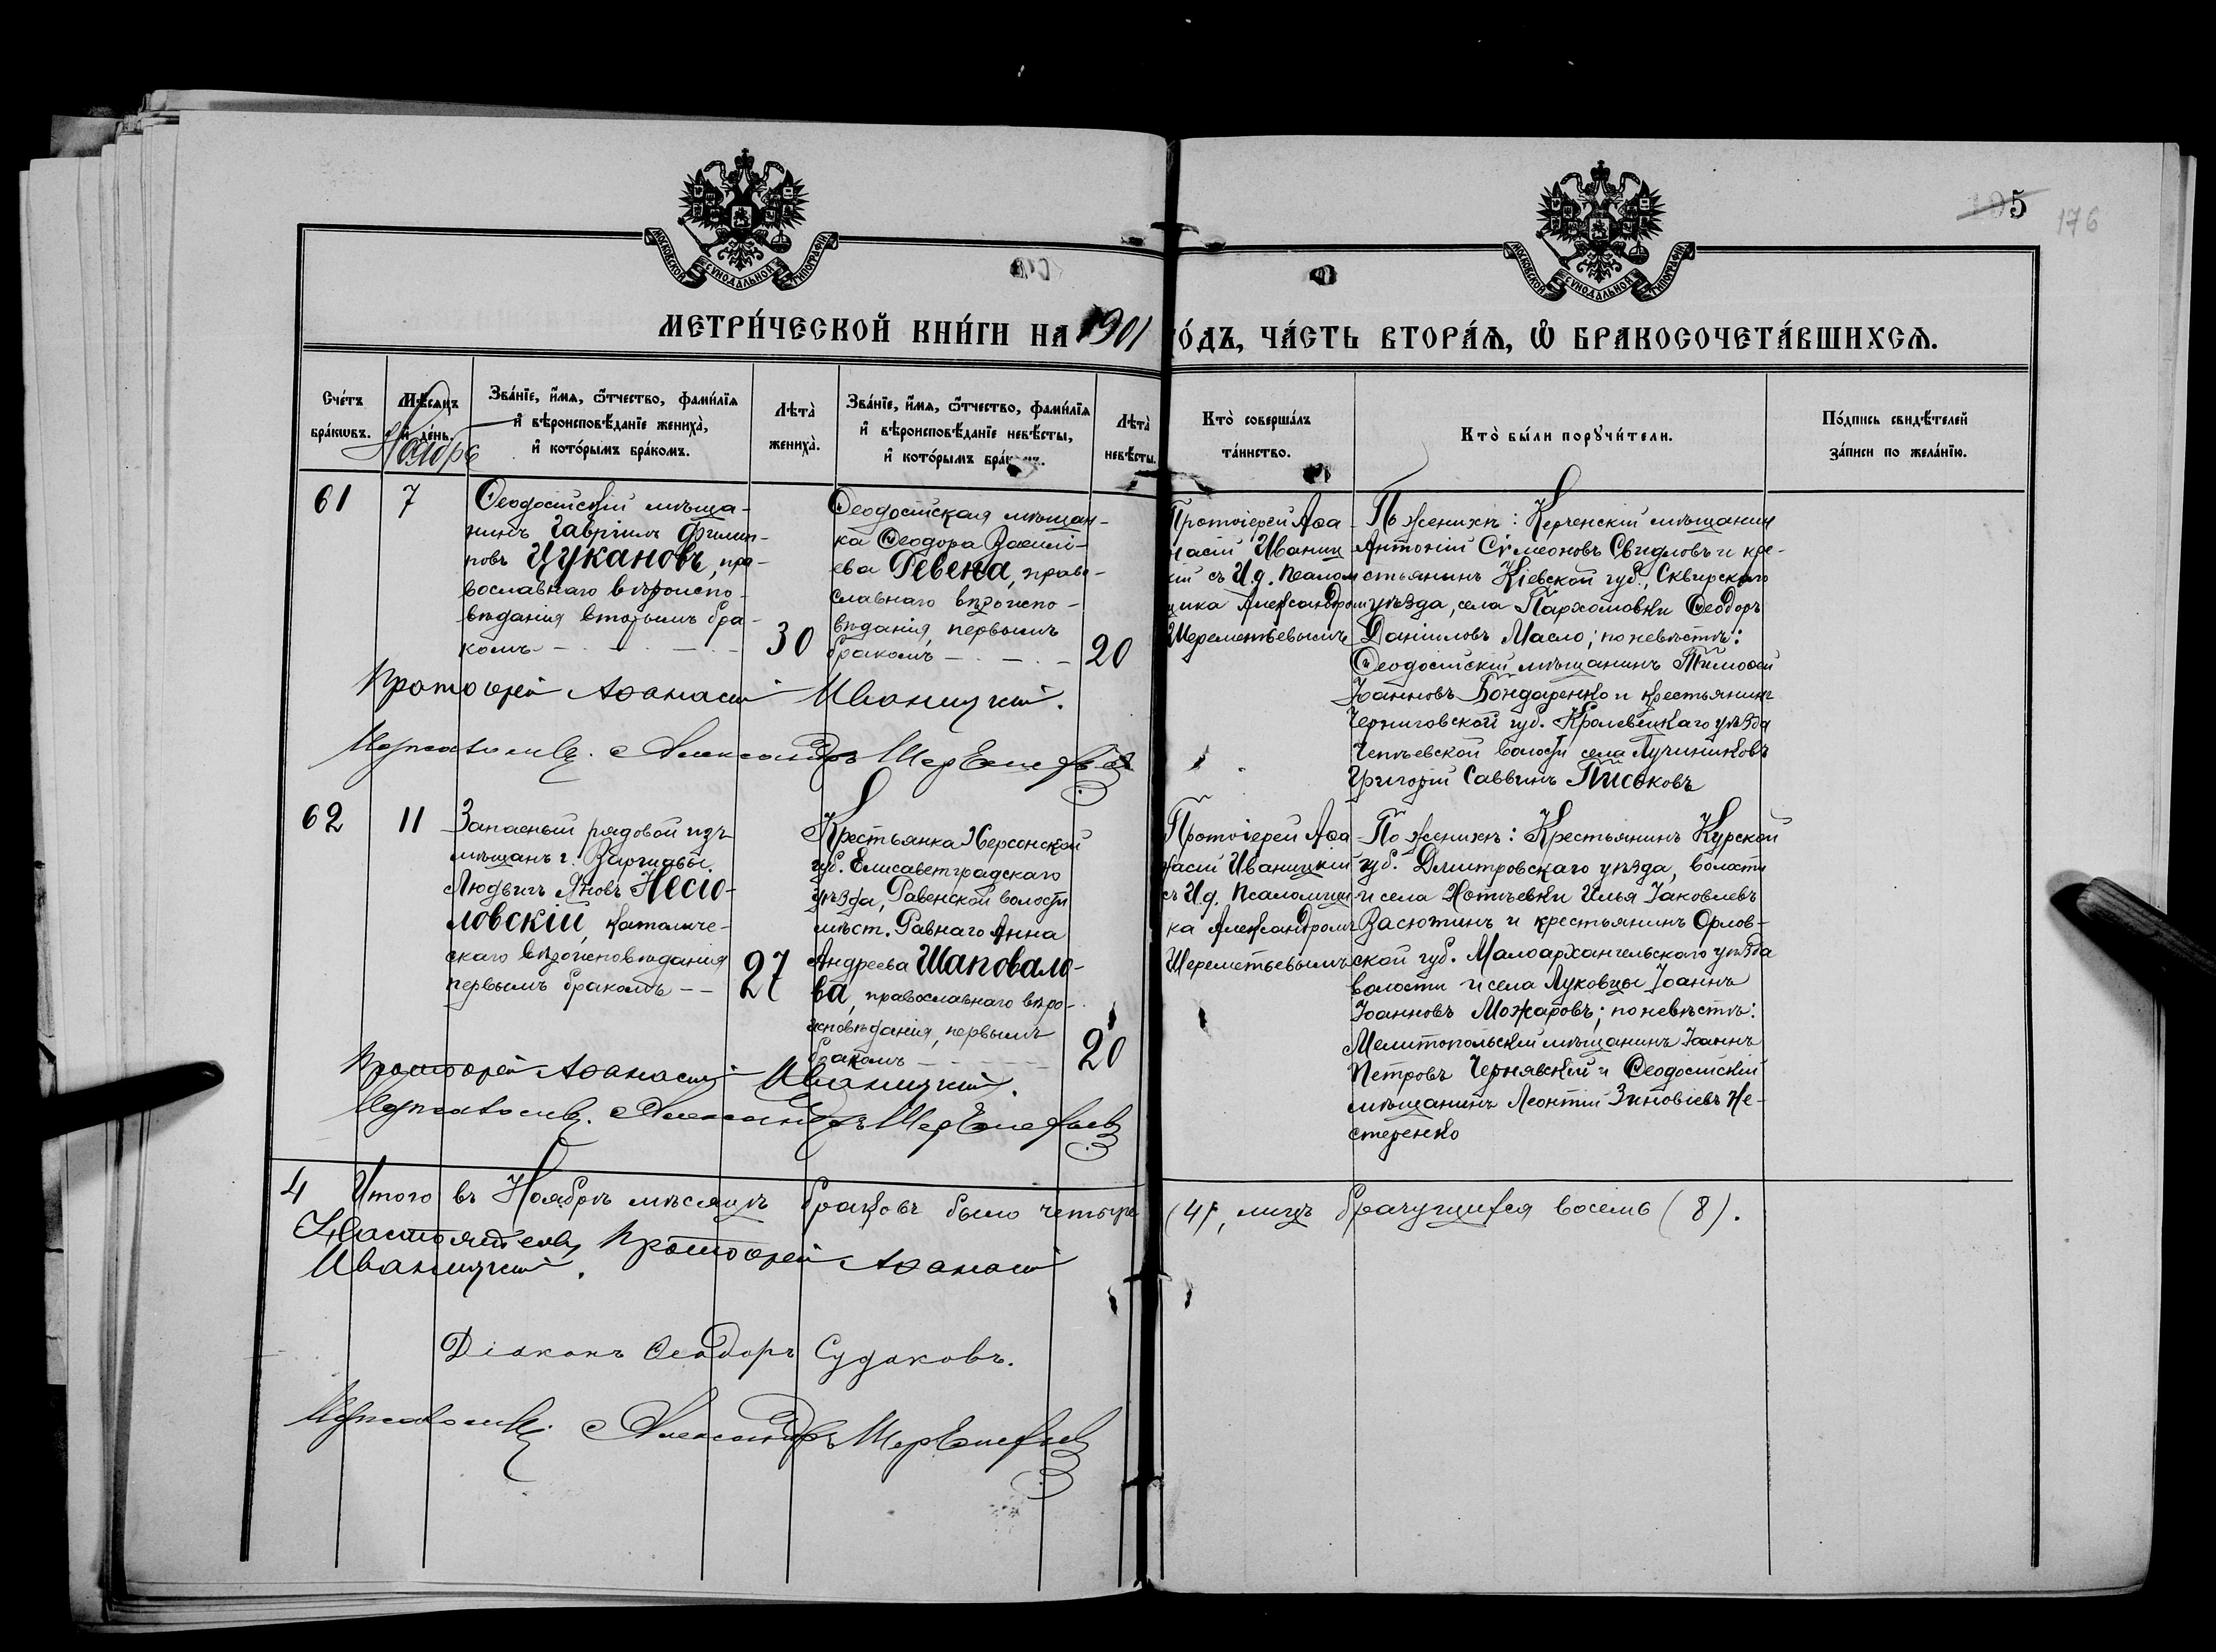 МОСКОВСКОЙ СУНОДАЛЬНОЙ ТИПОГРАФІИ
МОСКОВСКОЙ СУНОДАЛЬНОЙ ТИПОГРАФІИ
5
176
МЕТРИ́ЧЕСКОЙ КНИ́ГИ НА 1901 ГО́ДЪ, ЧА́СТЬ ВТОРА́Ѧ, Ѡ БРАКОСОЧЕТА́ВШИХСѦ.
Сче́тъ бра́кѡвъ.
Мѣ́сѧцъ и де́нь.
Ноябрь
Зва́нїе, и҆́мѧ, ѻ҆́тчество, фами́лїѧ и҆ вѣроисповѣ́данїе жениха̀, и҆ кото́рымъ бра́комъ.
Лѣта̀ жениха̀.
Зва́нїе, и҆́мѧ, ѻ҆́тчество, фами́лїѧ и҆ вѣроисповѣ́данїе невѣ́сты, и҆ кото́рымъ бра́комъ.
Лѣта̀ невѣ́сты.
Кто̀ соверша́лъ та́инство.
Кто̀ бы́ли порꙋчи́тели.
По́дпись свидѣ́телей за́писи по жела́нїю.
61
7
Ѳеодосійскій мѣща-
нинъ Гавріилъ Филип-
повъ Цукановъ, пра-
вославнаго вѣроиспо-
вѣданія вторымъ бра-
комъ
30
Ѳеодосійская мѣщан-
ка Ѳеодора Василі-
ева Ревена, право-
славнаго вѣроиспо-
вѣданія, первымъ
бракомъ
20
Протоіерей Аѳа-
насій Иваниц-
кій съ И.д. псалом
щика Александромъ
Шереметьевымъ
По женихѣ: Керченскій мѣщанин
Антоній Сѵмеоновъ Свидловъ и кре-
стьянинъ Кіевской губ., Сквирскаго
уѣзда, села Пархомовки Ѳеодоръ
Даніиловъ Масло; по невѣстѣ:
Ѳеодосійскій мѣщанинъ Тимоѳей
Іоанновъ Бондаренко и крестьянинъ
Черниговской губ. Кролевецкаго уѣзда
села
Григорій Саввинъ Письковъ
Протоіерей Аѳанасій Иваницкій.
Александръ Шереметьевъ
62
11
Запасный рядовой изъ
мѣщанъ г. Варшавы
Людвигъ Яновъ Несіо-
ловскій, католиче-
скаго вѣроисповѣданія
первымъ бракомъ
27
Крестьянка Херсонской
губ. Елисаветградскаго
уѣзда, Равенской волости
мѣст. Равнаго Анна
Андреева Шаповало-
ва, православнаго вѣро-
исповѣданія, первымъ
бракомъ
20
Протоіерей Аѳа-
насій Иваницкій
съ И.д. псаломщи-
ка Александромъ
Шереметьевымъ
По женихѣ: Крестьянинъ Курской
губ. Дмитровскаго уѣзда, волости
и села Хотѣевки Илья Іаковлевъ
Васютинъ и крестьянинъ Орлов-
ской губ. Малоархангельскаго уѣзда
волости и села Луковцы Іоаннъ
Іоанновъ Можаровъ; по невѣстѣ:
Мелитопольскій мѣщанинъ Іоаннъ
Петровъ Чернявскій и Ѳеодосійскій
мѣщанинъ Леонтій Зиновіевъ Не-
стеренко
Протоіерей Аѳанасій Иваницкій.
Александръ Шереметьевъ
4 Итого въ Ноябрѣ мѣсяцѣ браковъ было четыре (4), лицъ брачущихся восемь (8).
Настоятель, Протоіерей Аѳанасій
Иваницкій.
Діаконъ Ѳеодоръ Судаковъ.
Александръ Шереметьевъ